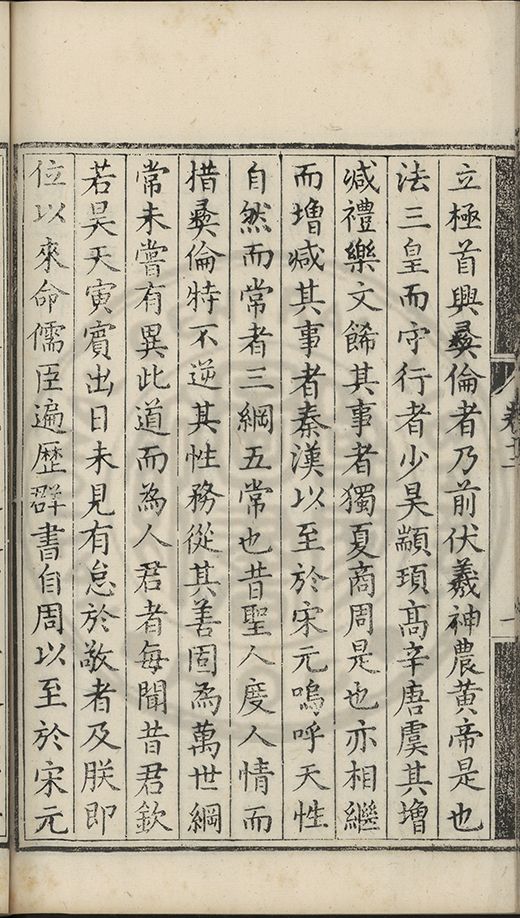 立極首興彝倫者乃前伏羲神農黃帝是也
法三皇而守行者少昊顓頊高辛唐虞其增
减禮樂文餙其事者獨夏商周是也亦相繼
而增减其事者秦漢以至於宋元嗚呼天性
自然而常者三綱五常也昔聖人度人情而
措彝倫特不逆其性務從其善固為萬世綱
常未嘗有異此道而為人君者每聞昔君欽
若昊天寅賓出日未見有怠於敬者及朕即
位以來命儒臣遍歴群書自周以至於宋元